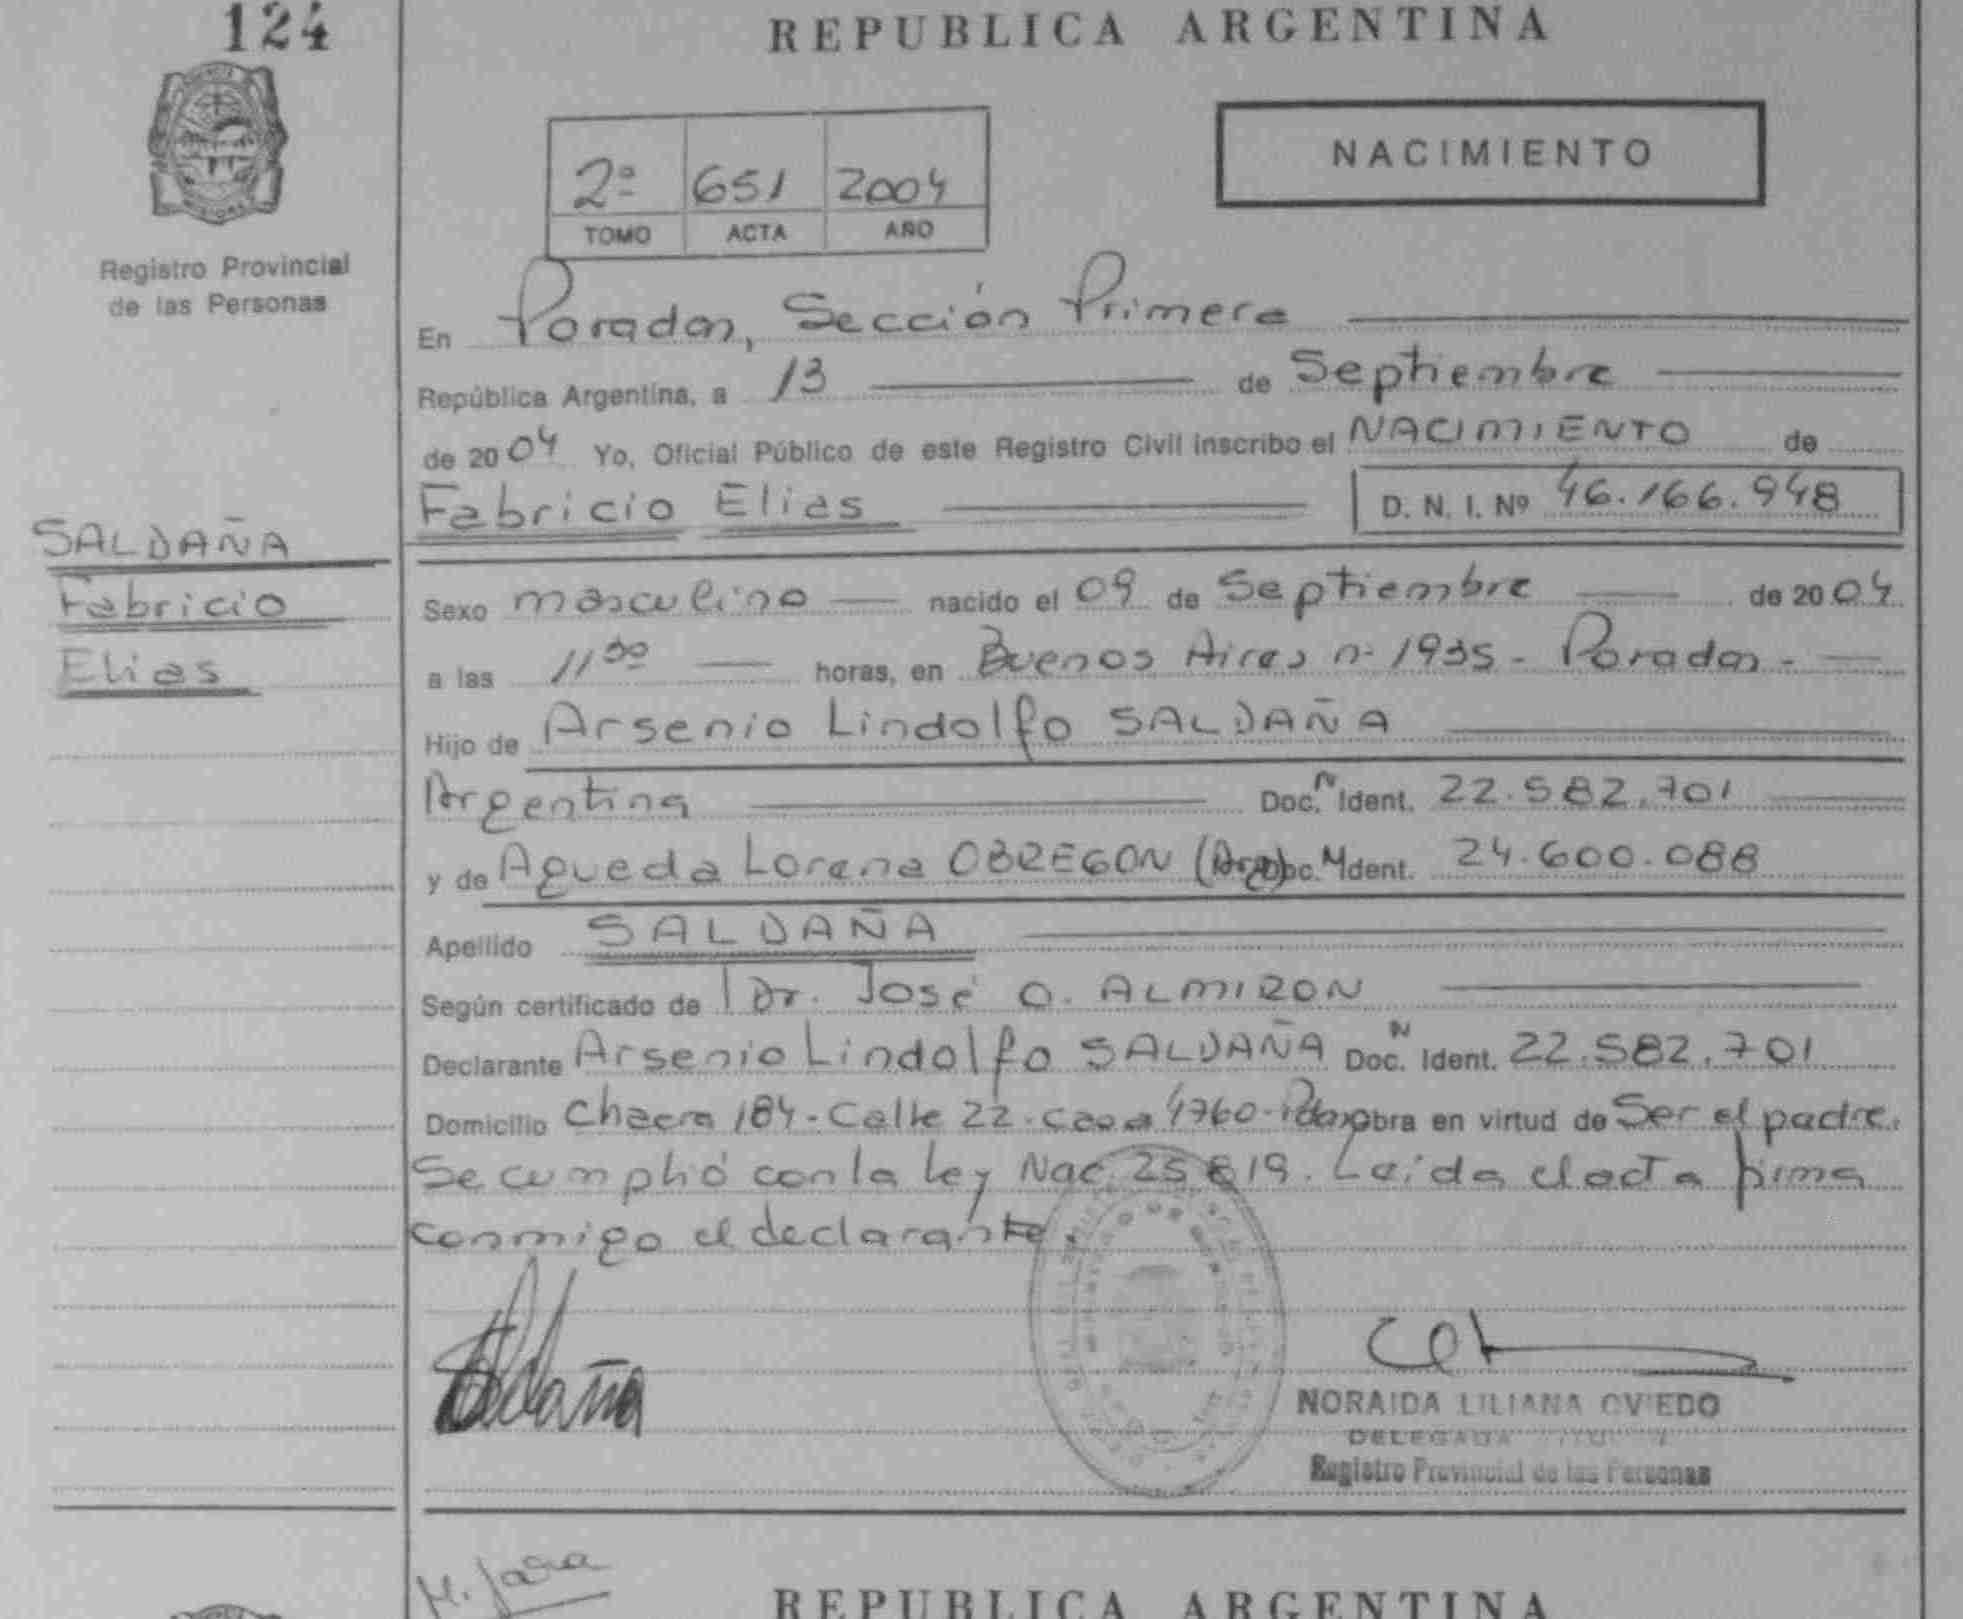 124
REPUBLICA ARGENTINA
NACIMIENTO
2º 651 2004
TOMO ACTA AÑO
Registro Provincial
de las Personas
En Posadas, Sección Primera
República Argentina, a 13 de Septiembre
de 2004 Yo, Oficial Público de este Registro Civil inscribo el NACIMIENTO de
Fabricio Elias D. N. I. Nº 46.166.948
SALDAÑA
Fabricio
Elias
Sexo masculino nacido el 09 de Septiembre de 2004
a las 11 horas, en Buenos Aires nº 1935 - Posadas -
Hijo de Arsenio Lindolfo SALDAÑA
Argentina Doc. N Ident. 22.582.701
y de Agueda Lorena OBREGON (Arg) Doc. N Ident. 24.600.088
Apellido SALDAÑA
Según certificado de Dr. José O. ALMIRON
Declarante Arsenio Lindolfo SALDAÑA Doc. N Ident. 22.582.701
Domicilio Chacra 184 - Calle 22 - casa 4760 - obra en virtud de Ser el padre.
Se cumplió con la ley Nac. 25 819. Leída el acta firma
conmigo el declarante.
Saldaña
NORAIDA LILIANA OVIEDO
DELEGADA
Registro Provincial de las Personas
REPUBLICA ARGENTINA